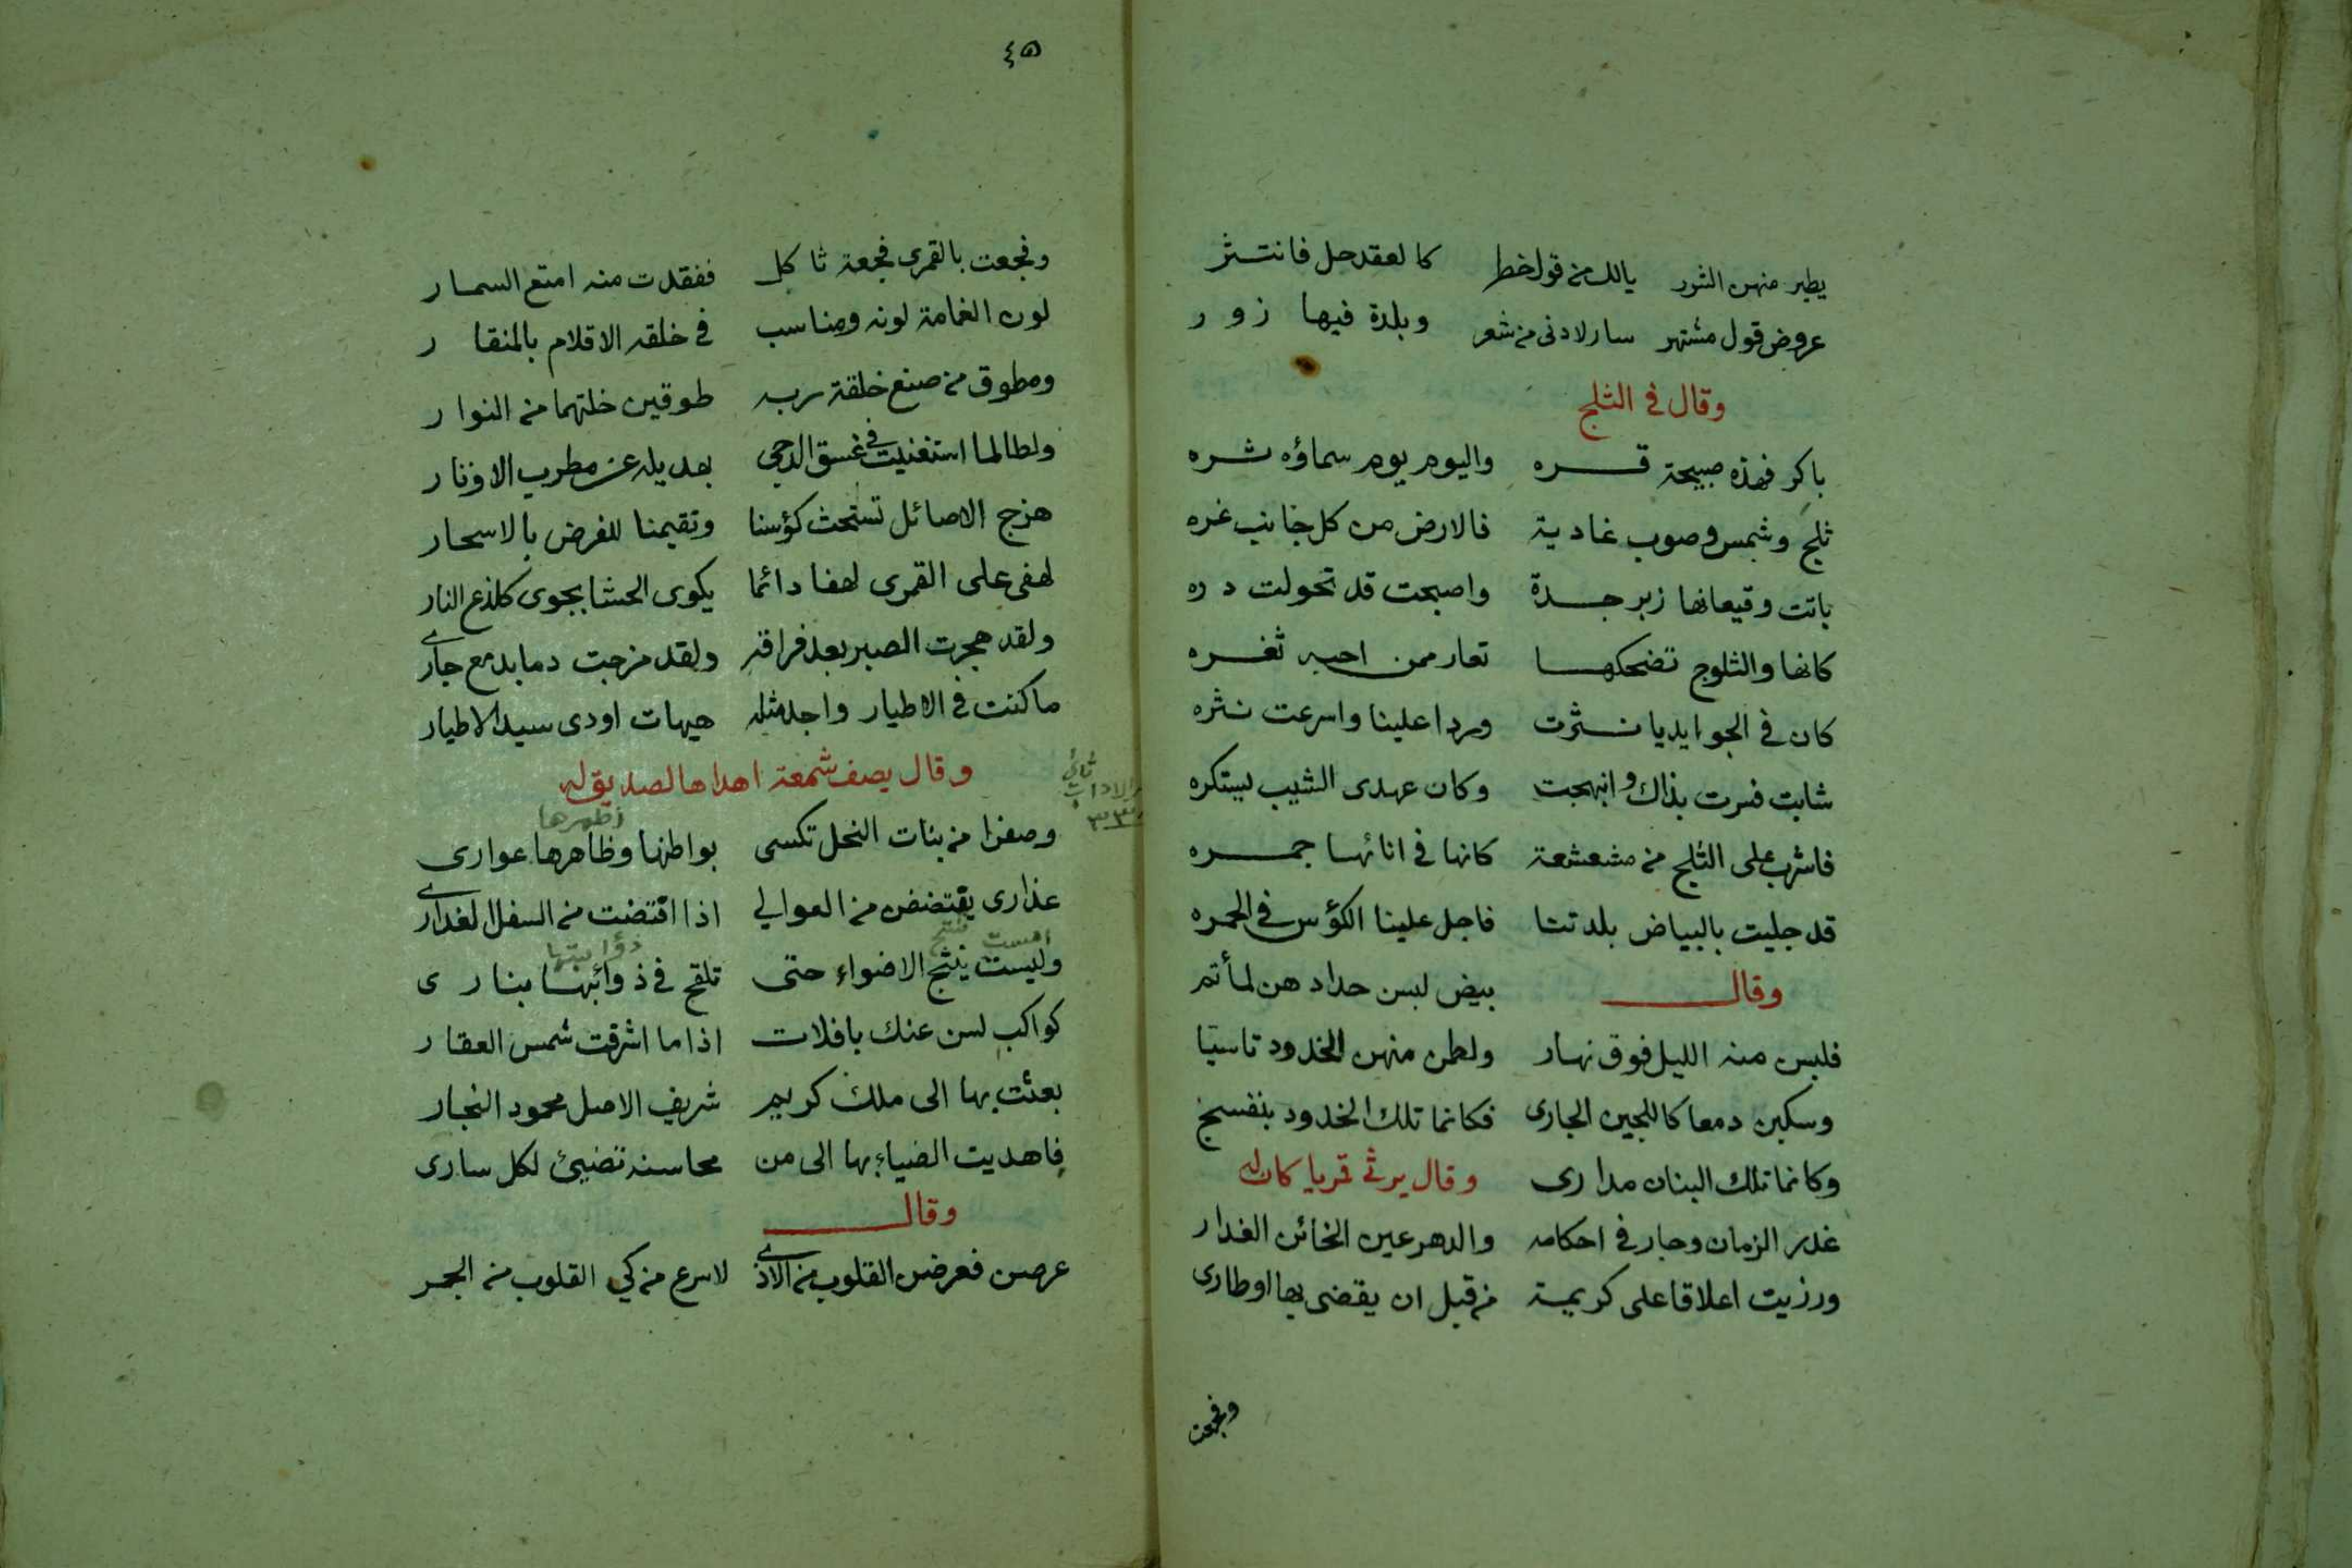 يطير منهن الشرر يالك من قول خطر كالعقد حل فانتثر
عروض قول مشتهر سار لادنى من شعر وبلدة فيها زور
وقال في الثلج
باكر فهذه صبيحة قره واليوم يوم سماؤه ثره
ثلج وشمس وصوب غادية فالارض من كل جانب غره
باتت وقيعانها زبرجدة واصبحت قد تحولت دره
كانها والثلوج تضحكها تعار ممن احبه ثغره
كان في الجو ايديا نثرت وردا علينا واسرعت نثره
شابت فسرت بذاك وابتهجت وكان عهدى الشيب يستكره
فاشرب على الثلج من مشعشعة كانها في انائها جمره
قد جليت بالبياض بلدتنا فاجل علينا الكؤس في الحمره
وقال بيض لبسن حداد هن لمأتم
فلبس منه الليل فوق نهار ولطمن منهن الخدود تاسيا
وسكبن دمعا كاللجين الجارى فكانما تلك الخدود بنفسج
وكانما تلك البنان مدارى وقال يرثي قمريا كان له
غدر الزمان وجار في احكامه والدهر عين الخائن الغدار
ورزيت اعلاقا على كريمة من قبل ان يقضى بها اوطارى
وفجعت
٤٥
وفجعت بالقمرى فجعة ثاكل ففقدت منه امتع السمار
لون الغمامة لونه ومناسب في خلقه الاقلام بالمنقار
ومطوق من صنع خلقة ربه طوقين خلتهما من النوار
ولطالما استغنيت في غسق الدجى بهديله عن مطرب الاوتار
هزج الاصائل تستحث كؤسنا وتقيمنا للفرض بالاسحار
لهفى على القمرى لهفا دائما يكوى الحشا بجوى كلذع النار
ولقد هجرت الصبر بعد فراقه ولقد مزجت دما بدمع جارى
ما كنت في الاطيار واجد مثله هيهات اودى سيد الاطيار
وقال يصف شمعة اهداها لصديق له
ظهرها
وصفرا من بنات النحل تكسى بواطنها وظاهرها عوارى
عذارى يفتضضن من العوالي اذا افتضت من السفل العذارى
امست تنتج ذؤابتها
وليست ينتج الاضواء حتى تلقح في ذوائبها بنارى
كواكب لسن عنك بافلات اذا ما اشرقت شمس العقار
بعثت بها الى ملك كريم شريف الاصل محمود النجار
فاهديت الضياء بها الى من محاسنه تضيئ لكل سارى
وقال
عرضن فعرضن القلوب من الاذى لاسرع من كي القلوب من الجمر